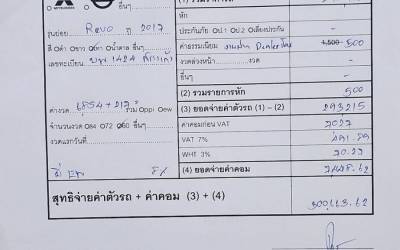 MITSUBISHI อื่นๆ
รุ่นย่อย Revo ปี 2017
หัก
ประกันภัย ป.1 ป.2 เลี่ยงประกัน -
สี ดำ ขาว เทา น้ำตาล อื่นๆ
ค่าธรรมเนียม 1,500 500
เลขทะเบียน 1424
งวดล่วงหน้า งวด -
อื่นๆ -
(2) รวมรายการหัก 500
ค่างวด 6854+217 รวม ppi ew
(3) ยอดจ่ายค่าตัวรถ (1) – (2) 293215
จำนวนงวด 84 72 60 อื่นๆ
ค่าคอมก่อน VAT 7027
งวดแรกวันที่
VAT 7% 491.89
WHT 3%
(4) ยอดจ่ายค่าคอม
สุทธิจ่ายค่าตัวรถ + ค่าคอม (3) + (4)